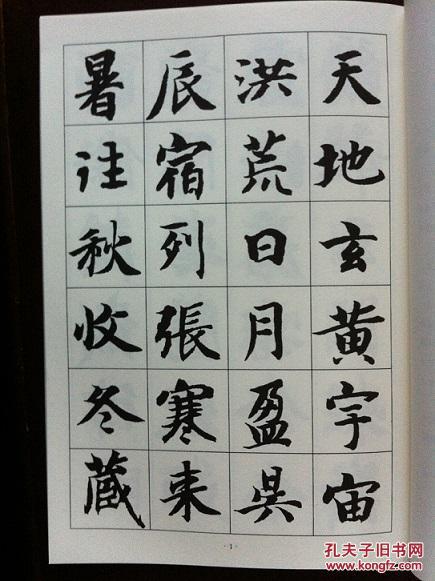 天地玄黄宇宙
洪荒日月盈昃
辰宿列張寒来
暑往秋收冬藏
·1·
孔夫子旧书网
www.kongfz.com